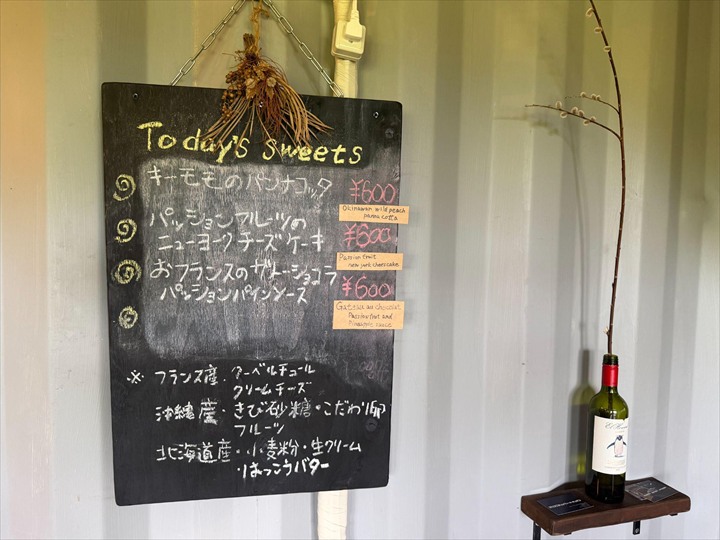 Today's sweets
キーモモのパンナコッタ
¥600
Okinawan wild peach
panna cotta
パッションフルーツの
ニューヨークチーズケーキ
¥600
Passion fruit
new york cheesecake
おフランスのガトーショコラ
パッションパインソース
¥600
Gateau au chocolat
Passion fruit and
Pineapple sauce
※ フランス産・クーベルチュール
クリームチーズ
沖縄産・きび砂糖・こだわり卵
フルーツ
北海道産・小麦粉・生クリーム
・はっこうバター